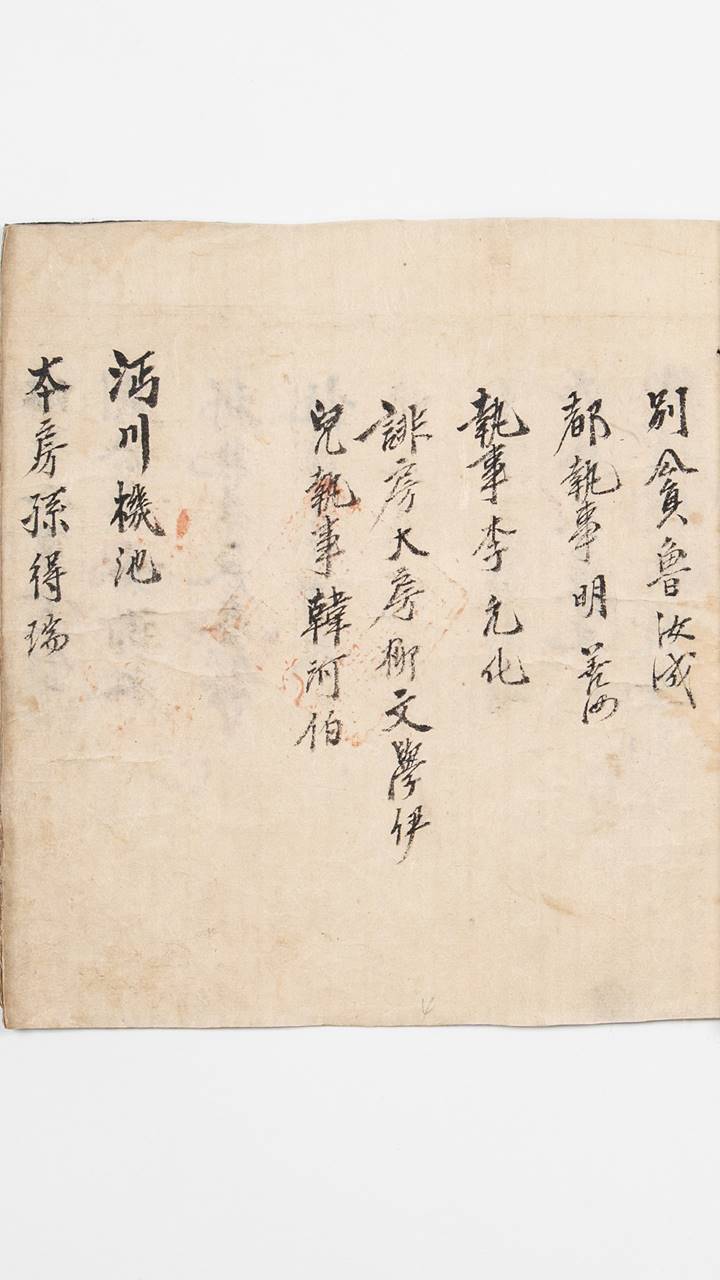 別貪魯汝成
都執事明善汝
執事李允化
誹房大房鄭文學伊
兒執事韓河伯
沔川機池
本房孫得瑞